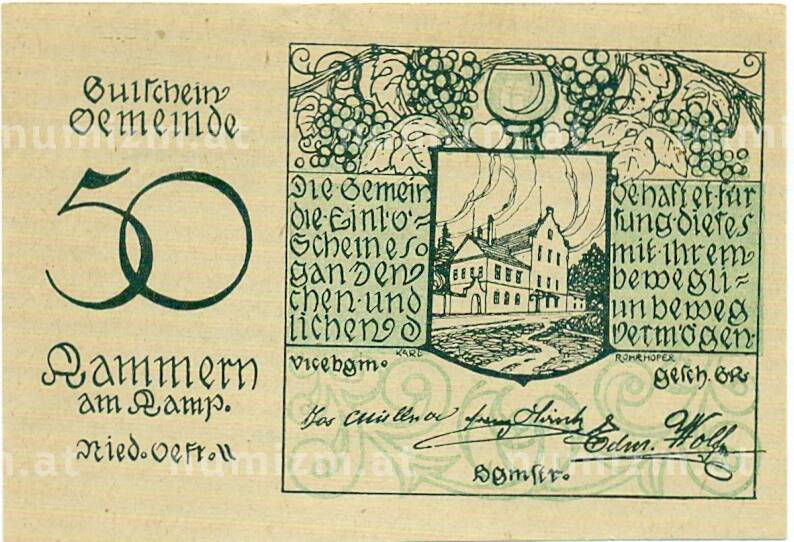 Gutschein
Gemeinde
50
Kammern
am Kamp.
Nied. Oestr.
Die Gemein de haftet für
die Einlö= sung dieses
Scheines mit ihrem
ganzen bewegli=
chen und unbeweg
lichen Vermögen
KARL ROHRHOFER
vicebgm. gesch. GR.
Jos Müllner Edm. Wolf
Bgmstr.
numizm.at